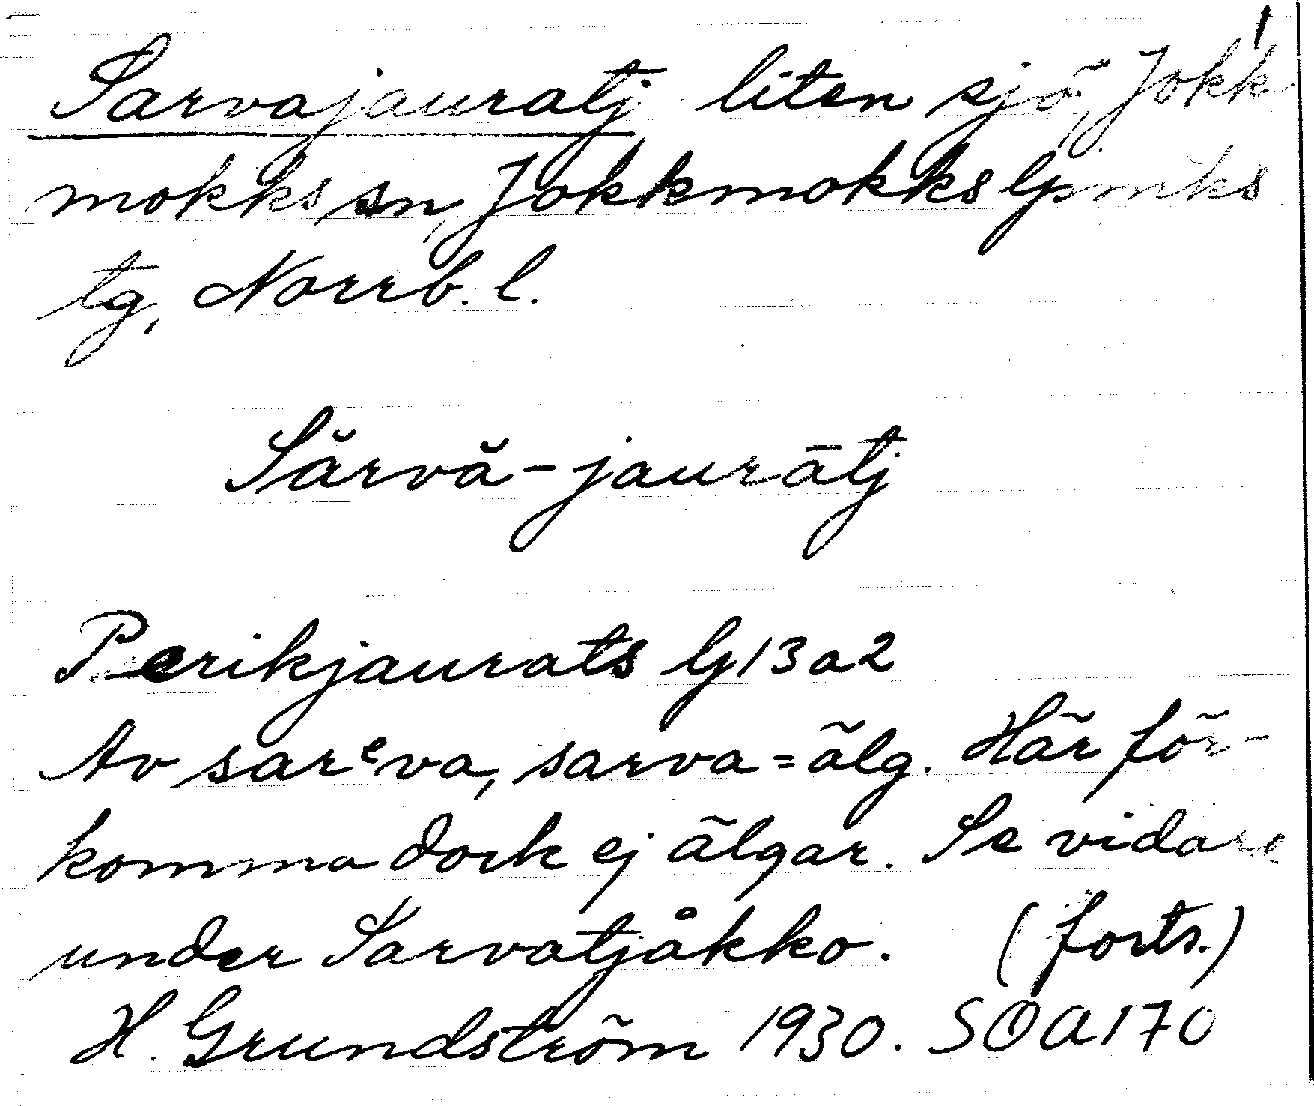 Sarvajauratj liten sjö, Jokk
mokks sn, Jokkmokks lpmks
tg, Norrb. l.
Sărvă-jaurātj
Perikjaurats G13a2
Av sarᵉva, sarva = älg. Här för-
komma dock ej älgar. Se vidare
under Sarvatjåkko. (forts.)
H. Grundström 1930. SOA170